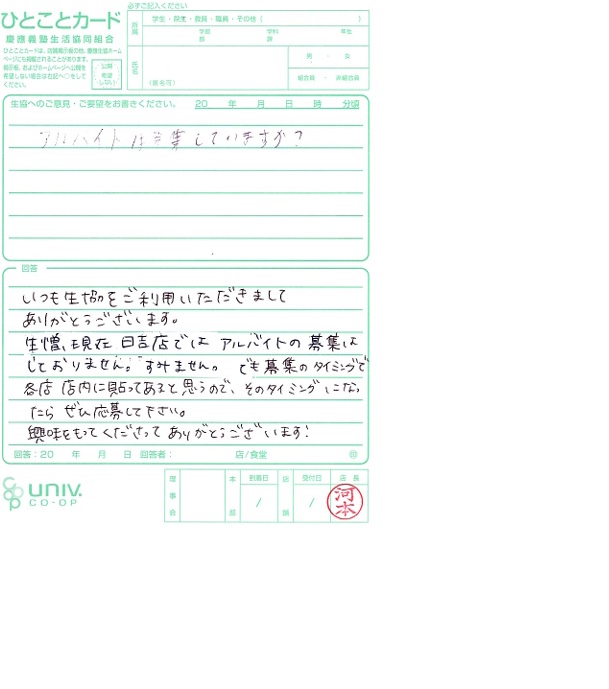 必ずご記入ください
ひとことカード
慶應義塾生活協同組合
ひとことカードは、店舗掲示板の他、慶應生協ホーム
ページにも掲載されることがあります。
掲示板、およびホームページへ公開を
希望しない場合は右記へ○をして
ください。
公開
希望
しない
所属
学生・院生・教員・職員・その他（　　　　　）
学部　学科　年生
部　課
氏名
（匿名可）
男・女
組合員・非組合員
生協へのご意見・ご要望をお書きください。　20　年　月　日　時　分頃
アルバイトは募集していますか？
回答
いつも生協をご利用いただきまして
ありがとうございます。
生憎、現在 日吉店では アルバイトの募集は
しておりません。すみません。でも募集のタイミングで
各店 店内に貼ってあると思うので、そのタイミングになっ
たら ぜひ応募して下さい。
興味をもってくださって ありがとうございます！
回答：20　年　月　日　回答者：　店/食堂　㊞
coop UNIV.
CO-OP
理事会
本部
到着日
/
店舗
受付日
/
店長
河本